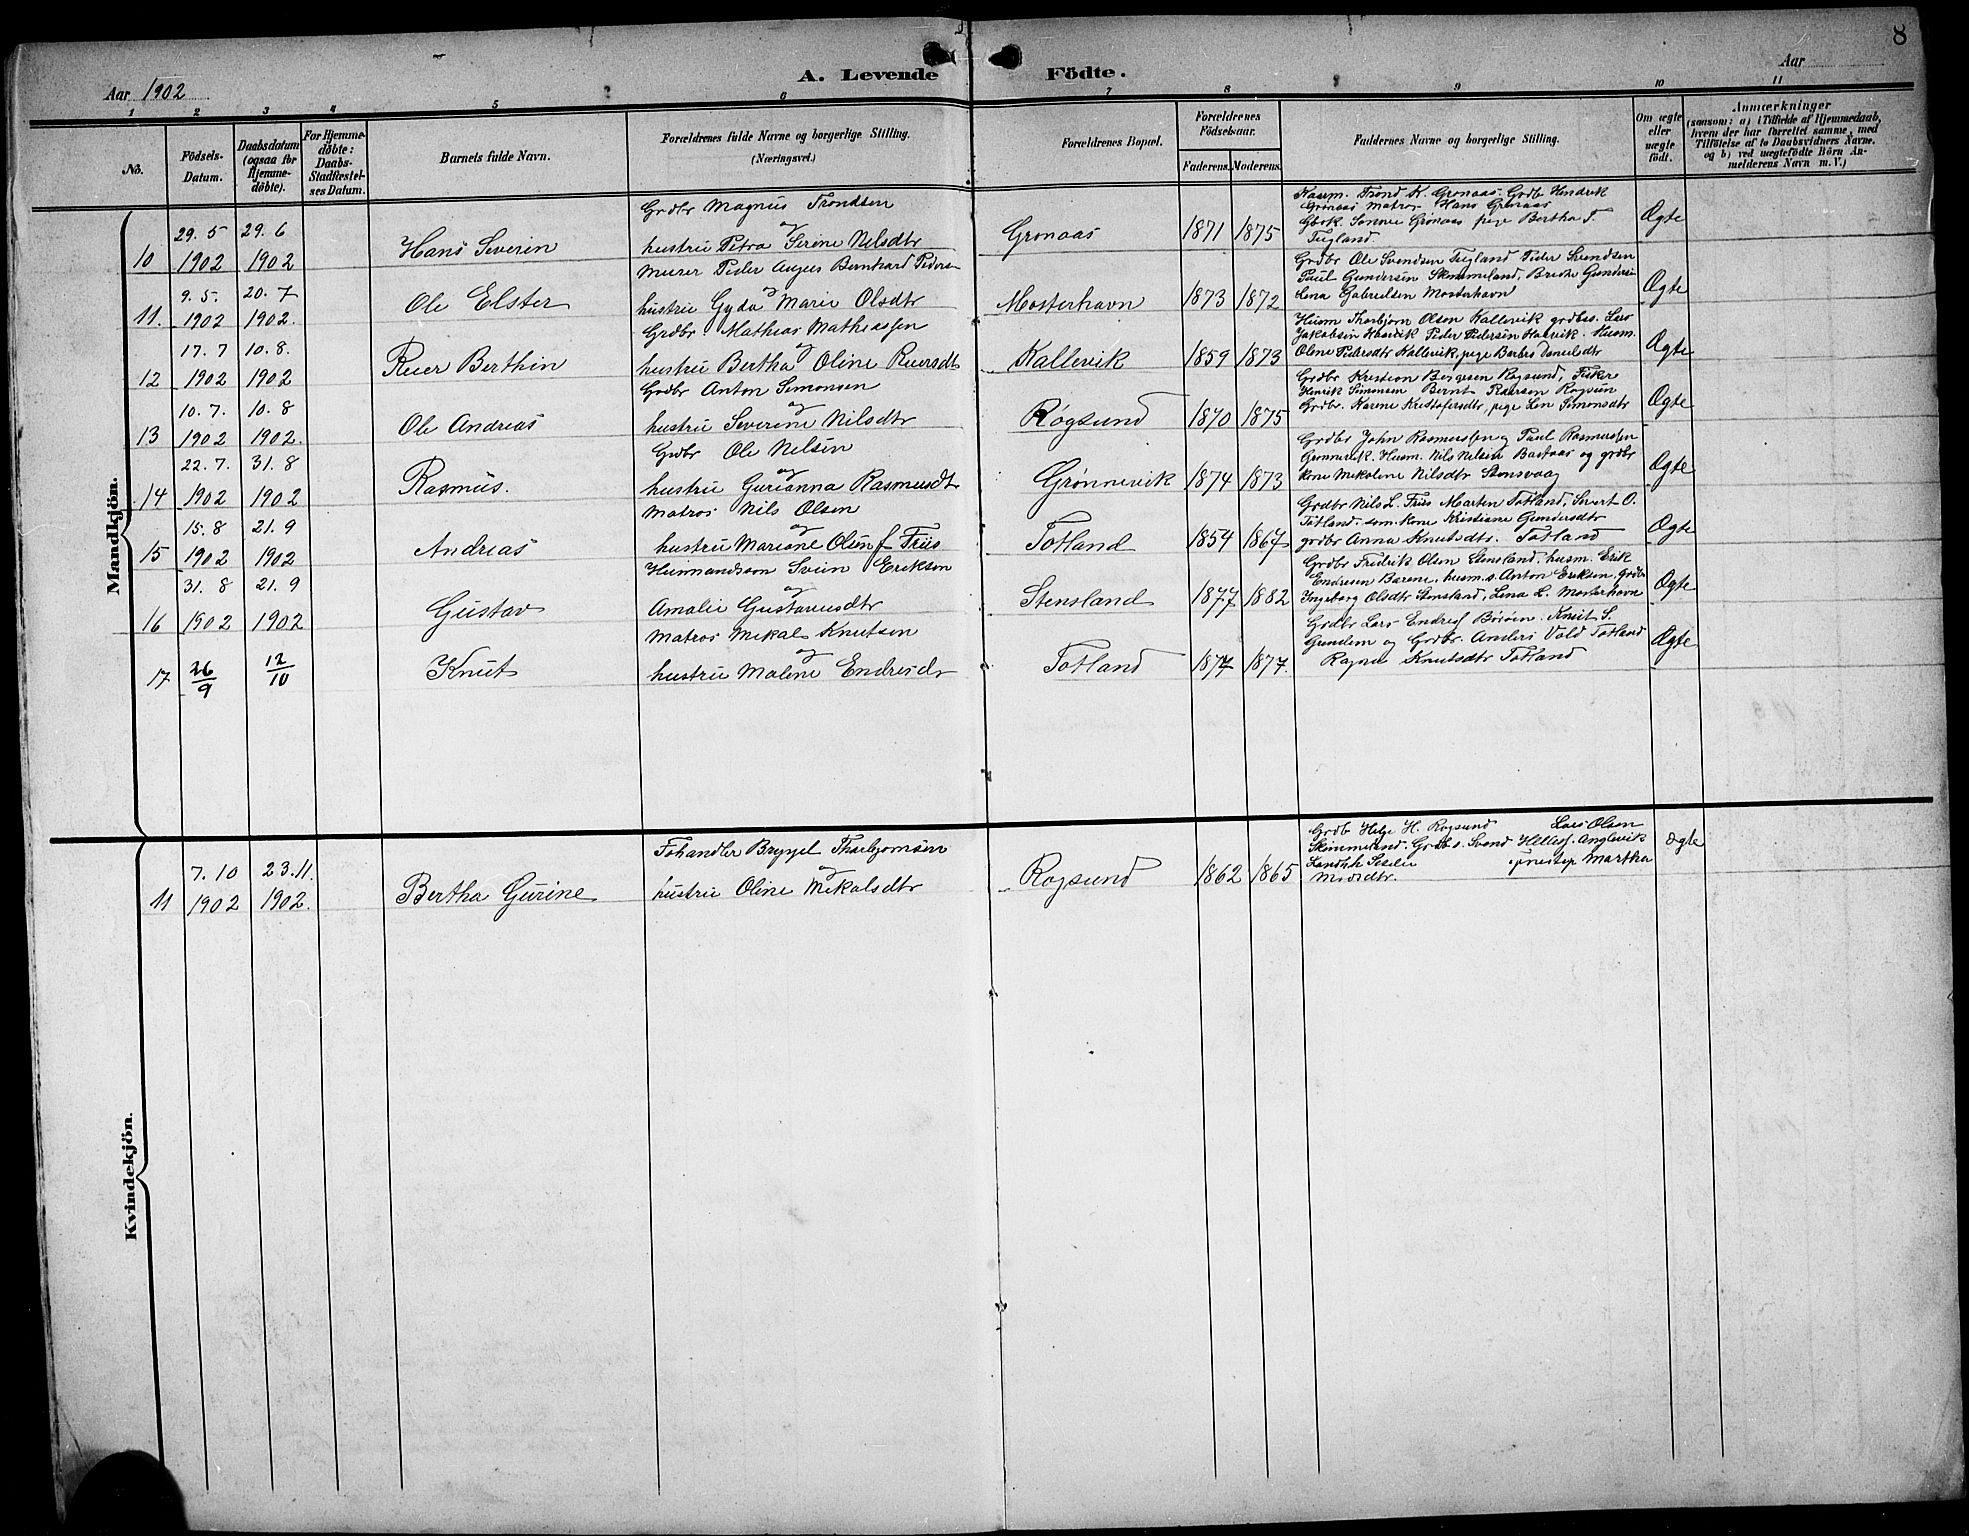 8
A. Levende Födte.
Aar 1902
Aar
1 2 3 4 5 6 7 8 9 10 11
No.
Födsels-Datum.
Daabsdatum (ogsaa for Hjemmedöbte).
For Hjemmedöbte: Daabs-Stadfæstelses Datum.
Barnets fulde Navn.
Forældrenes fulde Navne og borgerlige Stilling. (Næringsvei.)
Forældrenes Bopæl.
Forældrenes Födselsaar.
Faderens. Moderens.
Faddernes Navne og borgerlige Stilling.
Om ægte eller uægte födt.
Anmærkninger
(saasom: a) i Tilfælde af Hjemmedaab, hvem der har forrettet samme, med Tilföielse af to Daabsvidners Navne. og b) ved uægtefödte Börn Anmelderens Navn m. V.)
Mandkjön.
10 29. 5 1902 29. 6 1902 Hans Severin
Grdbr Magnus Trondsen og
hustru Petra Serine Nilsdtr
Gronaas 1871 1875
Trond K. Gronaas. Grdb Hendrik
Gronaas Matros Hans Gronaas
Gronaas pige Bertha T.
Tugland.
Ægte
11. 9. 5. 1902 20. 7 1902. Ole Elster
Murer Peder August Bernhard Peders
hustru Gyda Marie Olsdtr
Mosterhavn 1873 1872
Grdbr Ole Svendsen Tugland Peder Svendsen
Paul Gundersen Skimmeland, Gunders
Lena Gabrielsen Mosterhavn
Ægte
12 17. 7 1902 10. 8. 1902 Reier Berthin
Grdbr Mathias Mathiassen og
hustru Bertha Oline Reiersdtr
Kallevik 1859 1873
Husm Thorbjörn Olsen Kallevik grdbs. Lars
Jakobsen Haavik Peder Pedersen Haavik. Husm.
Olene Pedersdtr Kallevik, pige Danielsdtr
Ægte
13 10. 7. 1902 10. 8 1902. Ole Andreas
Grdbr Anton Simonsen og
hustru Severine Nilsdtr
Røgsund 1870 1875
Grdbr Kristian Børgesen Røgsund, Fisker
Henrik Simonsen Bernt
Grdbr. Karene Kristofersdtr, pige Simonsdtr
Ægte
14 22. 7. 1902 31. 8 1902 Rasmus.
Grdbr Ole Nelsen og
hustru Gurianna Rasmusdtr
Grønnevik 1874 1873
Grdbr John Rasmussen og Paul Rasmussen
Grønnevik. Husm. Nils Nelsen og grdbr
kone Mekoline Nilsdtr Stensvaag
Ægte
15 15. 8 1902 21. 9 1902 Andreas
Matros Nils Olsen og
hustru Mariane Olsen f Friis
Totland 1854 1867
Grdbr Nils L. Friis Marten Totland, Sivert O.
Totland. søm. kone Kristiane Gundersdtr
grdbr Anna Knutsdtr. Totland
Ægte
16 31. 8 1902 21. 9 1902 Gustav
Husmandssøn Svein Erikson og
Amalie Gustavusdtr
Stensland 1877 1882
Grdbr Fredrik Olsen Stensland, husm. Erik
Endresen husm. s. Anton Eriksen, Grdb
Ingeborg Olsdtr Stensland, Lena L. Mosterhavn
Ægte
17 26/9 12/10 Knut
Matros Mekal Knutsen og
hustru Malene Endresdr
Totland 1877 1877.
Grdbr Lars Endres Börøen. Knut S.
og Grdbr. Anders Vold Totland
Ragna Knutsdtr Totland
Ægte
Kvindekjön.
11 7. 10 1902 23. 11. 1902. Bertha Gurine
Brynjel Thorbjornsen og
hustru Oline Mekalsdtr
Rogsund 1862 1865
Grdb Helge H. Rogsund Lars Olsen
Skimmeland. Grdb s. Svend
Martha
Ægte